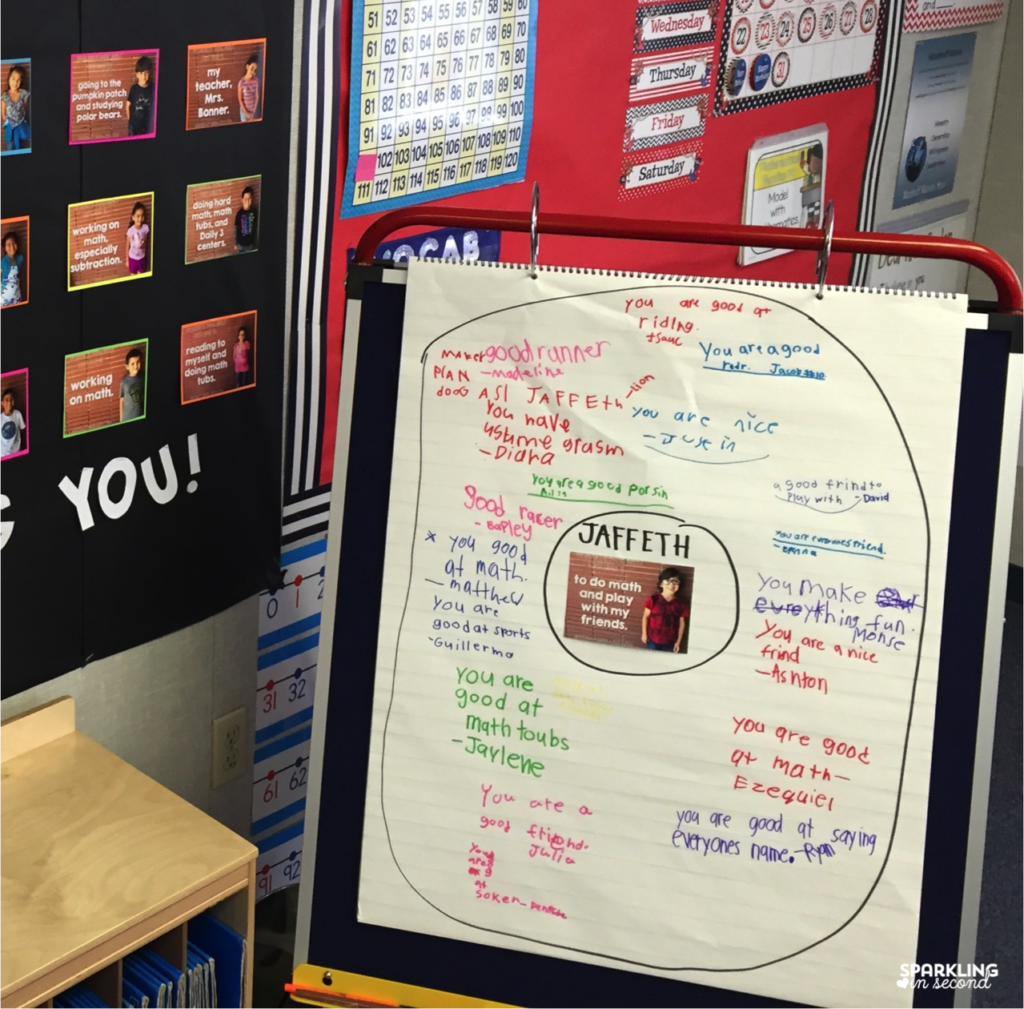 going to the
pumpkin patch
and studying
polar bears.
my
teacher,
Mrs.
Bonner.
working on
math,
especially
subtraction.
doing hard
math, math
tubs, and
Daily 3
centers.
working
on math.
reading to
myself and
doing math
tubs.
G YOU!
51 52 53 54 55 56 57 58 59 60
61 62 63 64 65 66 67 68 69 70
71 72 73 74 75 76 77 78 79 80
81 82 83 84 85 86 87 88 89 90
91 92 93 94 95 96 97 98 99 100
102 103 104 105 106 107 108 109 110
111 112 113 114 115 116 117 118 119 120
Wednesday
Thursday
Friday
Saturday
22 23 24 25 26 27 28
31
Model
with
VOCAB
0 1 2
31 32
61 62
91 92
you are good at
riding.
good runner
-madeline
You are a good
redr.
PLAN
ASI JAFFEth
-tion
you have
grasm
-Diana
you are nice
-Justin
You are a good porsin
a good frind to
play with -David
good racer
-Bayley
* you good
at math.
-matthew
you are
good at sports
-Guillermo
JAFFETH
to do math
and play
with my
friends.
friend.
you make
everything fun.
Monse
You are a nice
frind
-Ashton
you are
good at
math toubs
-Jaylene
you are good
at math-
Ezequiel
You are a
good friend-
Julia
you are good at saying
everyones name. -Ryan
at
soker-
SPARKLING
in second